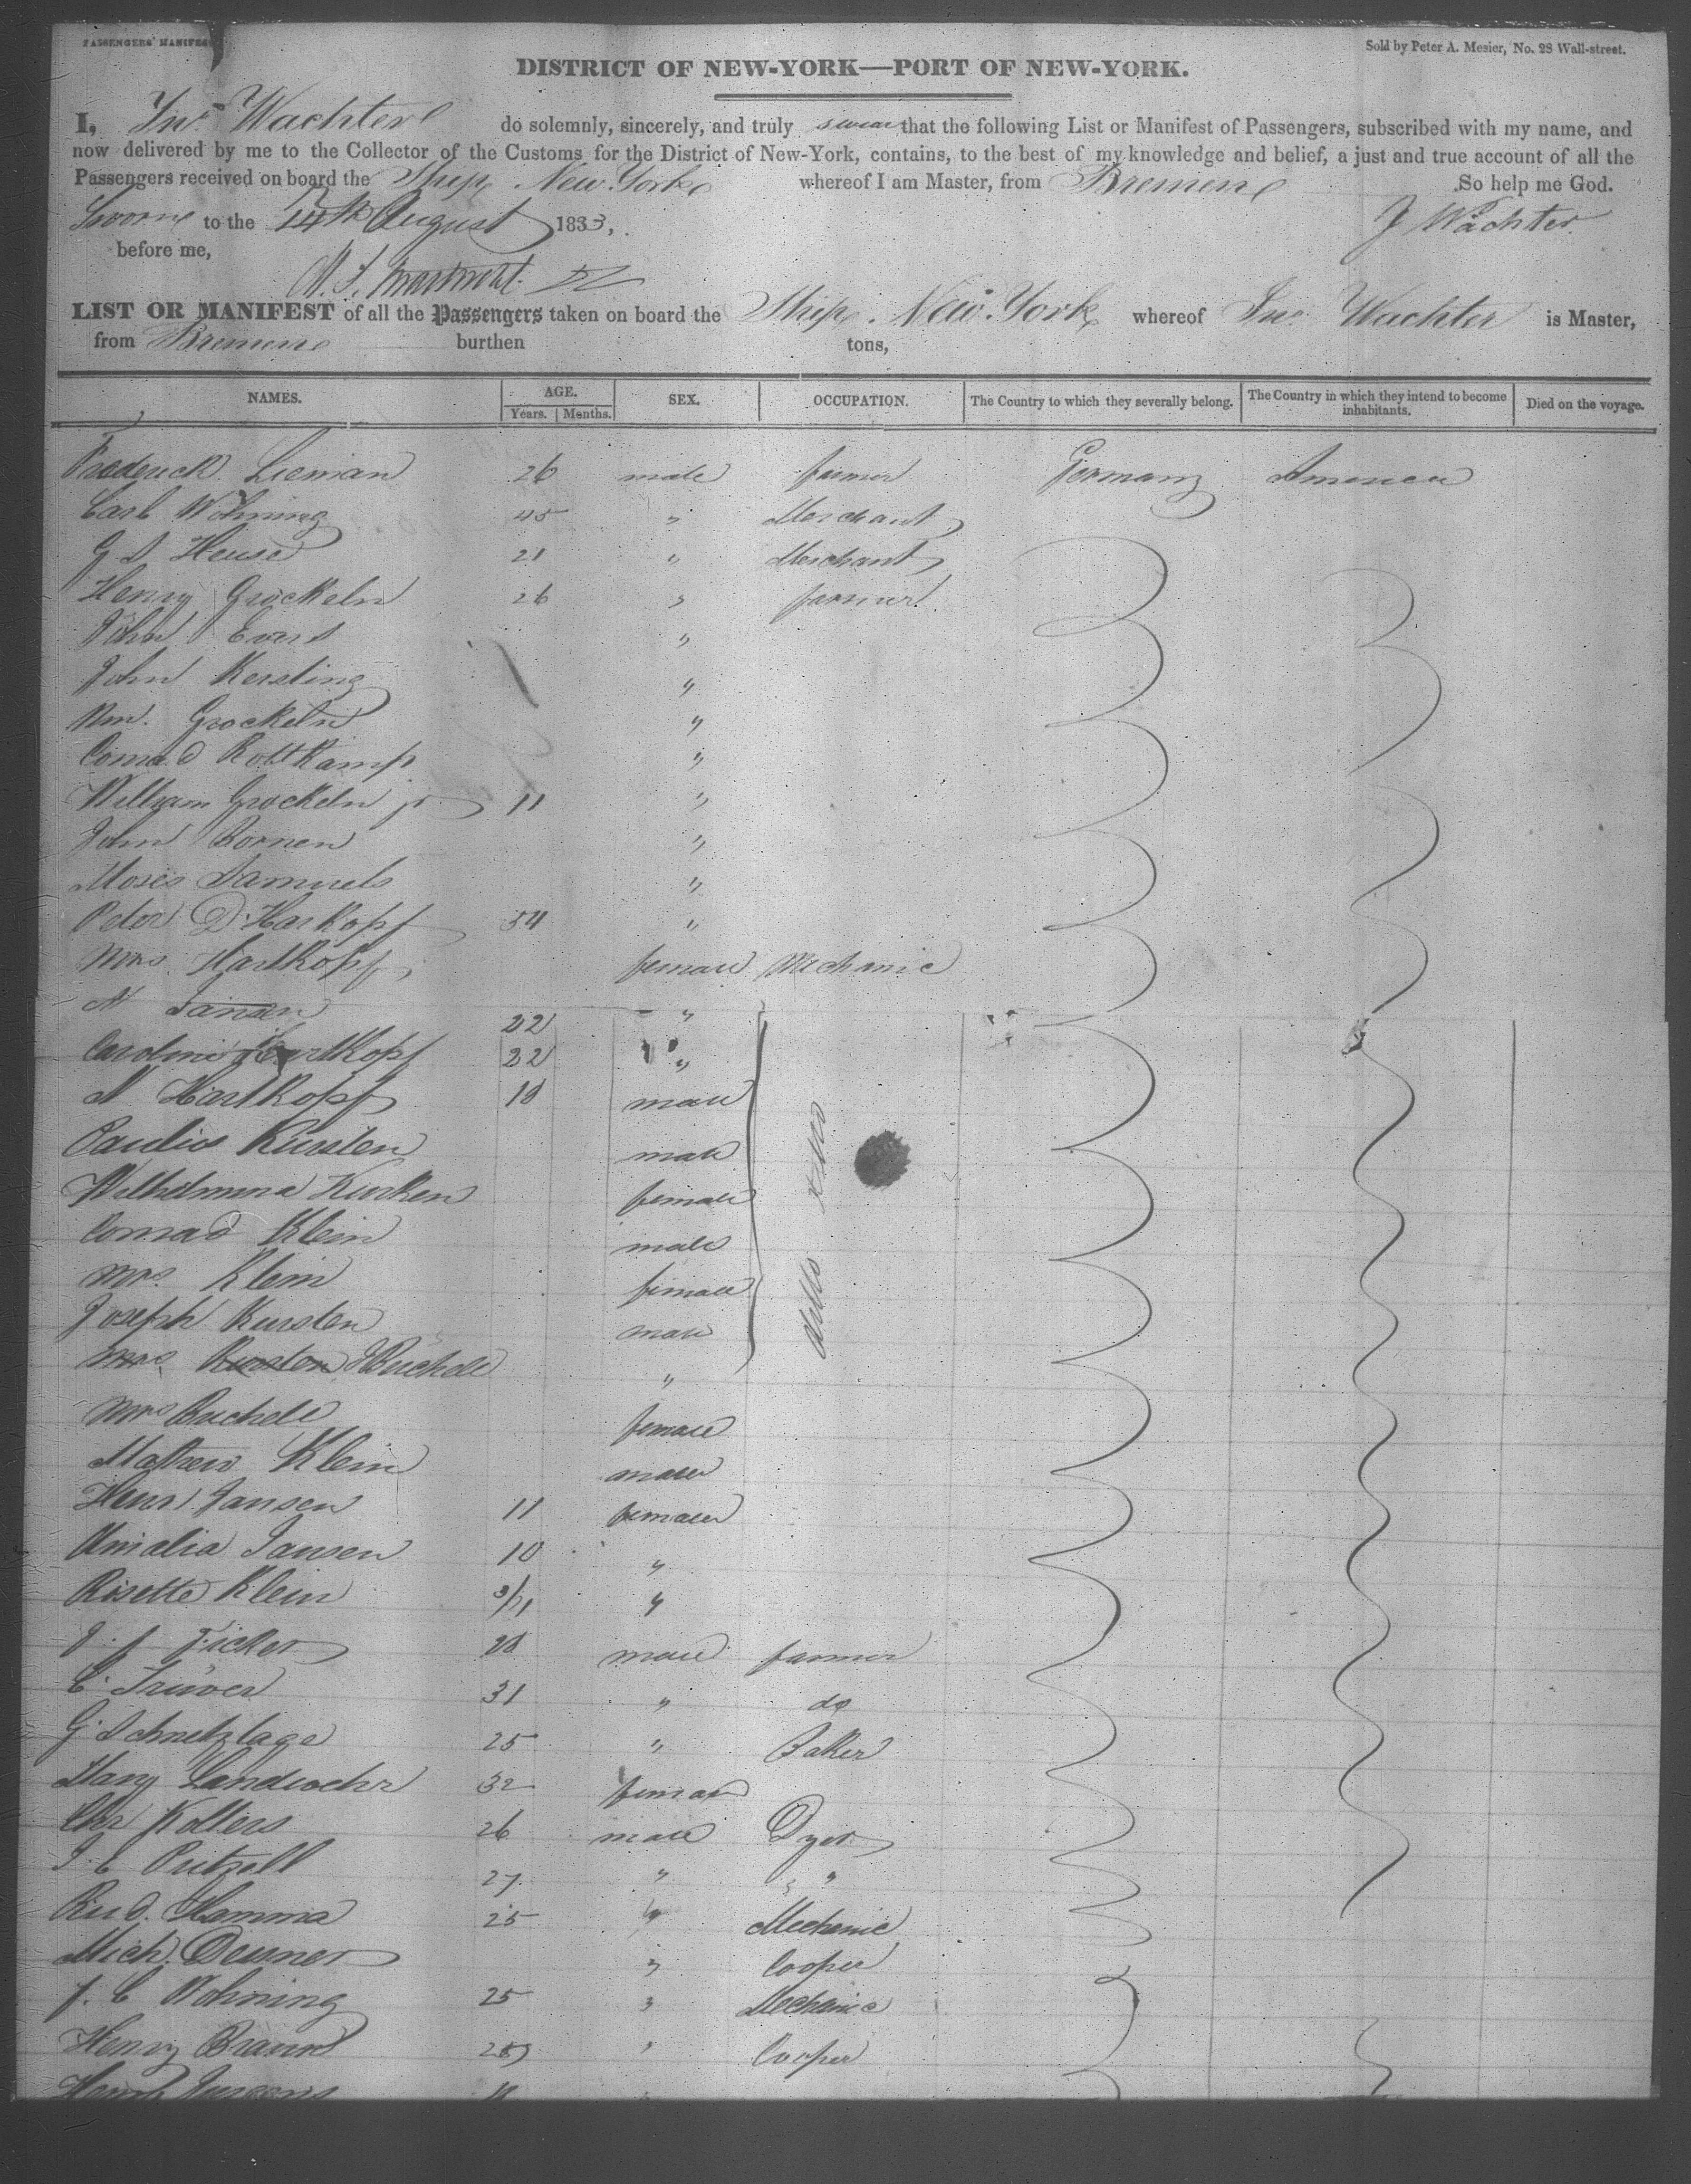 PASSENGERS' MANIFES
Sold by Peter A. Mesier, No. 28 Wall-street.
DISTRICT OF NEW-YORK—PORT OF NEW-YORK.
I, Jno. Wachter do solemnly, sincerely, and truly swear that the following List or Manifest of Passengers, subscribed with my name, and
now delivered by me to the Collector of the Customs for the District of New-York, contains, to the best of my knowledge and belief, a just and true account of all the
Passengers received on board the Ship New York whereof I am Master, from Bremen So help me God.
Sworn to the 14th August 1833, J Wachter
before me,
LIST OR MANIFEST of all the Passengers taken on board the Ship New York whereof Jno. Wachter is Master,
from Bremen burthen tons,
NAMES. AGE. SEX. OCCUPATION. The Country to which they severally belong. The Country in which they intend to become inhabitants. Died on the voyage.
Years. Months.
Frederick Lieman 26 male farmer Germany America
Carl Wohning 45 " Merchant
G S Heuse 21 " Merchant
Henry Grockeln 26 " farmer
John Evers "
John Kersting "
Wm. Grockeln "
Conrad Rottkamp "
William Grockeln jr 11 "
John Bornen "
Moses Samuels "
Peter D Hartkopf 54 "
Mrs Hartkopf female Mechanic
N Jansen 22 "
Caroline Hartkopf 22 "
N Hartkopf 18 male
Kursten male
Wilhelmina Kursten female
Conrad Klein male
Mrs. Klein female
Joseph Kursten male
Mrs. Kursten Buchele "
Mrs Buchele female
Mathew Klein male
Henr Jansen 11 female
Amalia Jansen 10 "
Risette Klein 3/11 "
J. F Ficker 28 male farmer
C. Truver 31 " do
G. Schnetzlage 25 " Baker
Mary Landwehr 32 female
Chr Kolters 26 male Dyer
J. C Putzall 27. " "
Rud. Hamma 25 " Mechanic
Mich. Deuner " Cooper
F. C Wohning 25 " Mechanic
Henry Braun " Cooper